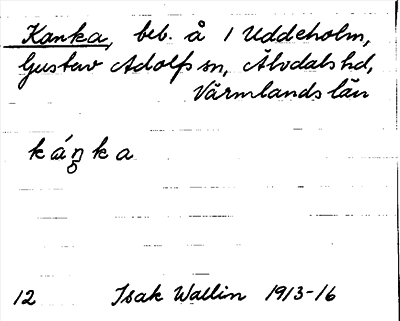 Kanka, beb. å 1 Uddeholm,
Gustav Adolfs sn, Älvdals hd,
Värmlands län
káŋ̥ka
12 Isak Wallin 1913-16